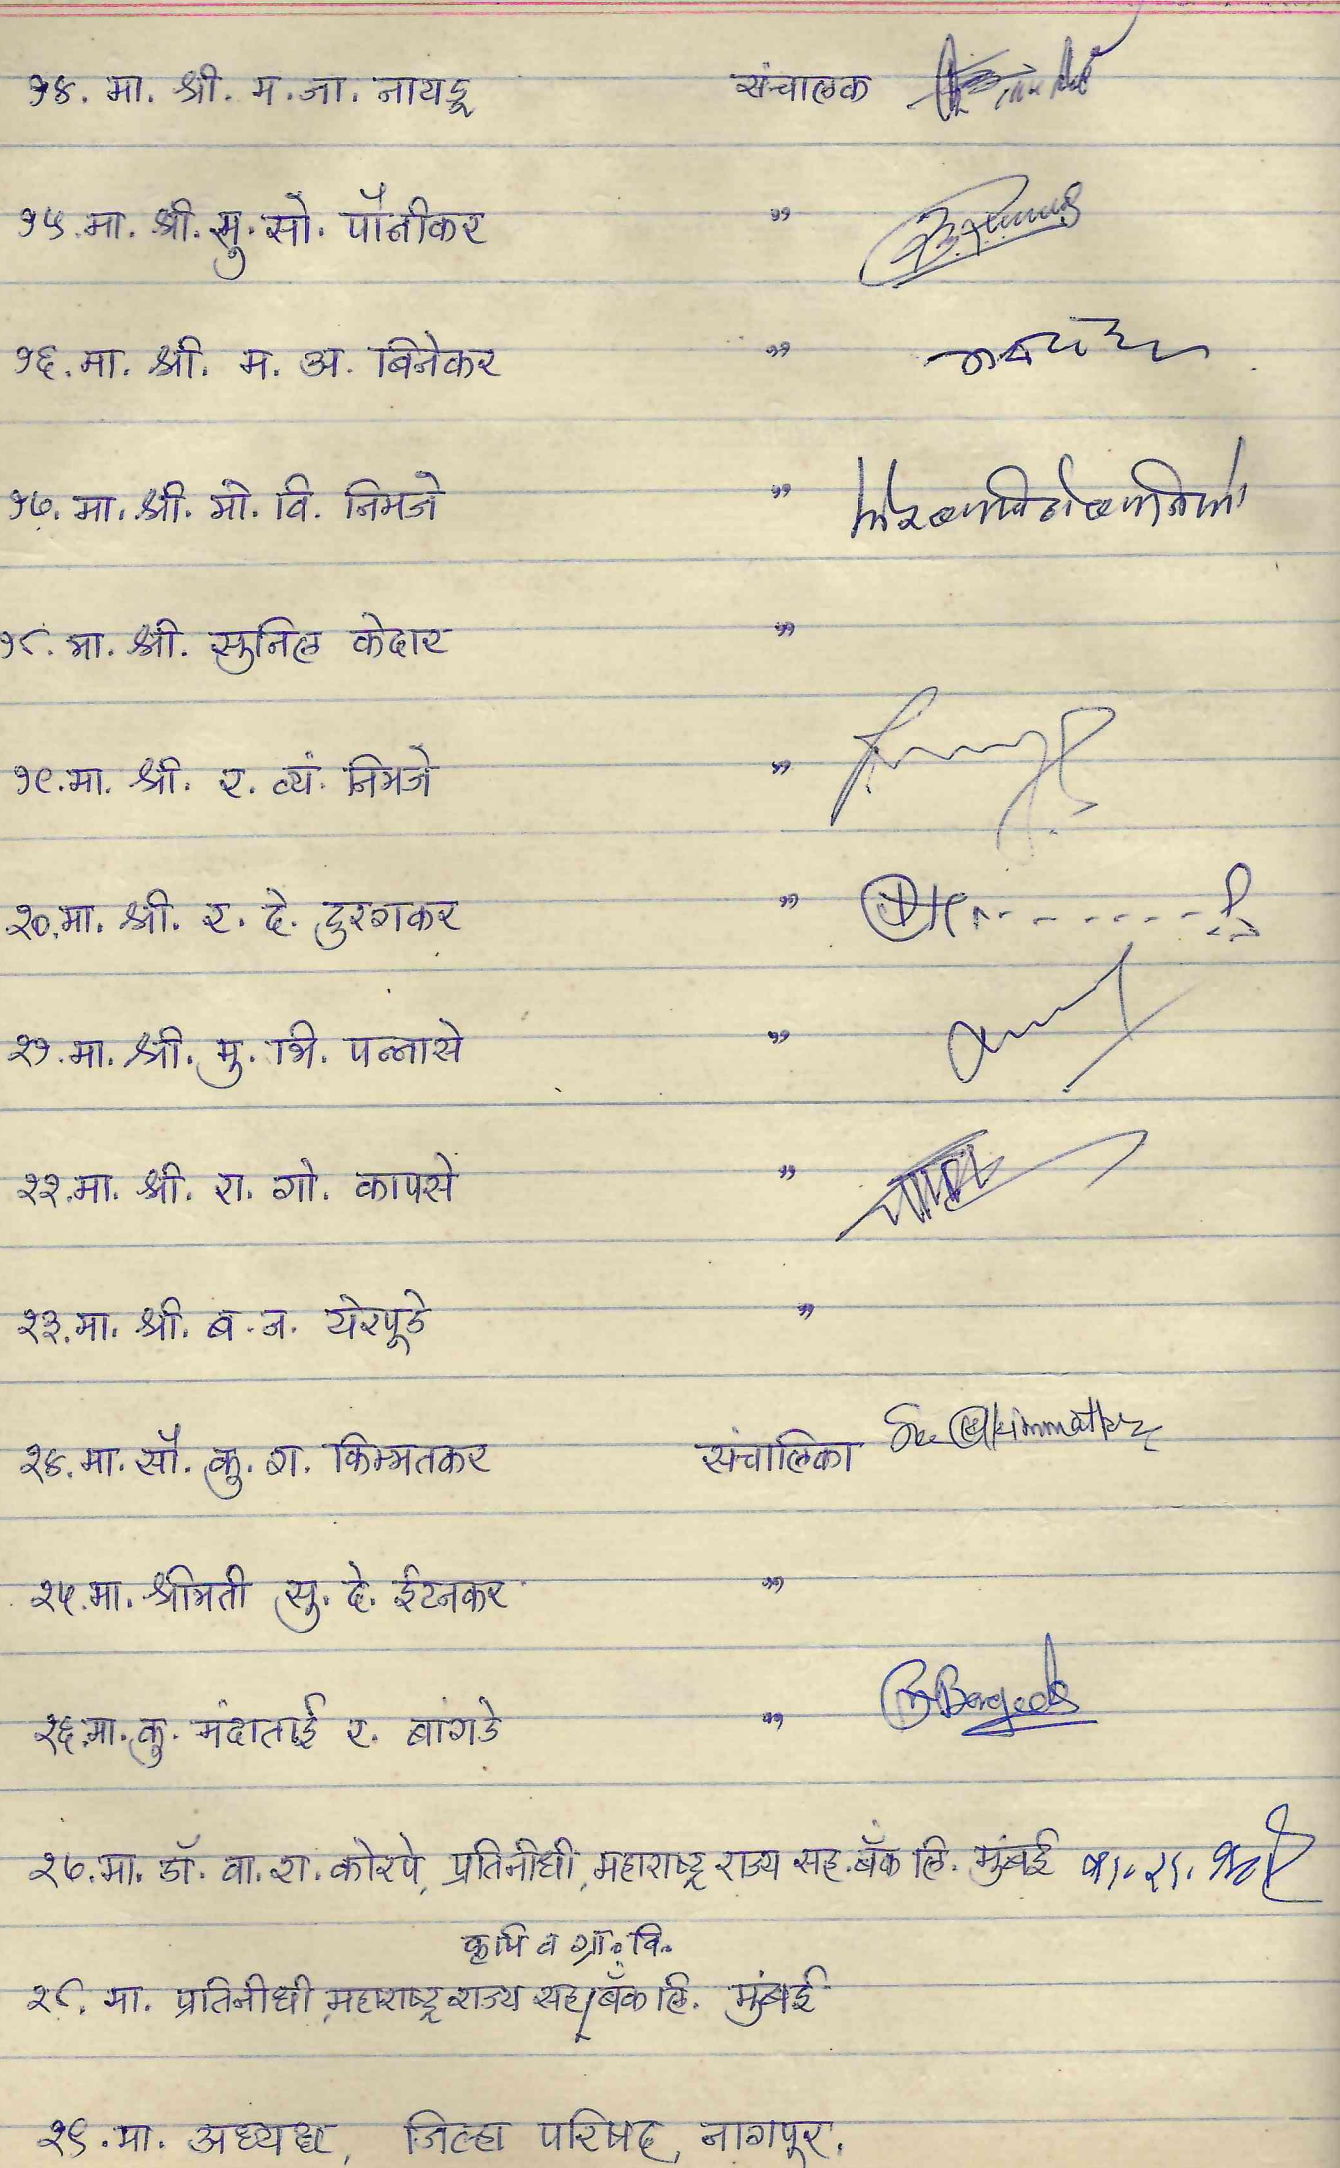 १४. मा. श्री. म. जा. नायडू संचालक
१५. मा. श्री. सु. सो. पौनीकर "
१६. मा. श्री. म. अ. बिनेकर "
१७. मा. श्री. मो. वि. निमजे "
१८. मा. श्री. सुनिल केदार "
१९. मा. श्री. र. व्यं. निमजे "
२०. मा. श्री. र. दे. दुरुगकर "
२१. मा. श्री. मु. भि. पन्नासे "
२२. मा. श्री. रा. गो. कापसे "
२३. मा. श्री. ब. ज. येरपूडे "
२४. मा. सौ. कु. श. किम्मतकर संचालिका
२५. मा. श्रीमती सु. दे. ईटनकर "
२६. मा. कु. मंदाताई र. बांगडे "
२७. मा. डॉ. वा. रा. कोरपे, प्रतिनीधी, महाराष्ट्र राज्य सह. बँक लि. मुंबई
कृषि व ग्रा. वि.
२८. मा. प्रतिनीधी, महाराष्ट्र राज्य सह बँक लि. मुंबई
२९. मा. अध्यक्ष, जिल्हा परिषद, नागपूर.